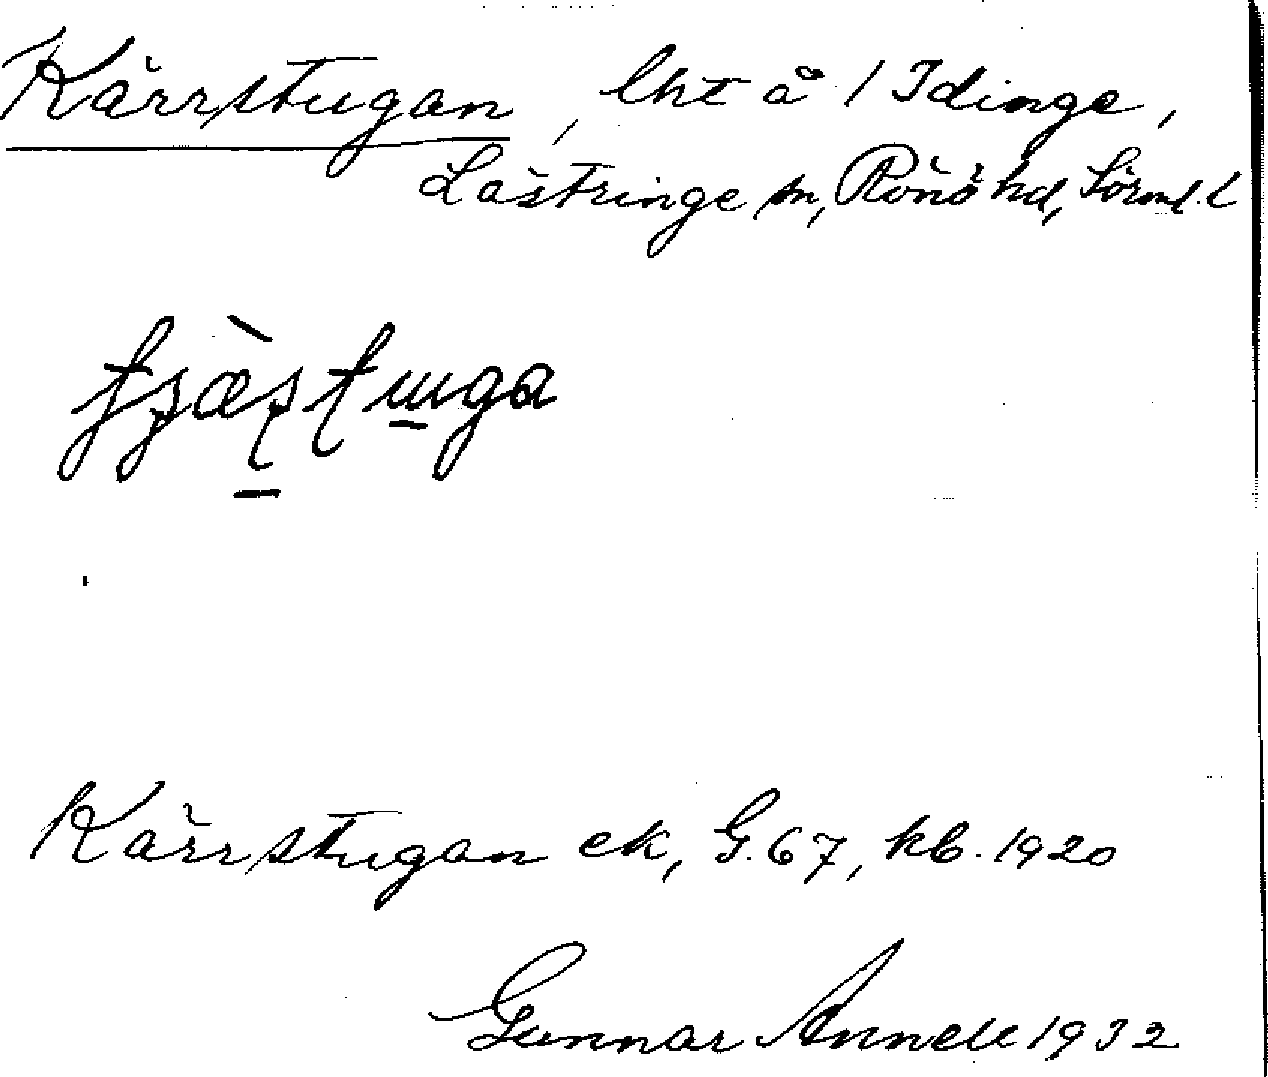 Kärrstugan, lht å 1 Idinge,
Lästringe sn, Rönö hd, Sörml. l
Kärrstugan ek, G. 67, kb. 1920
Gunnar Annell 1932